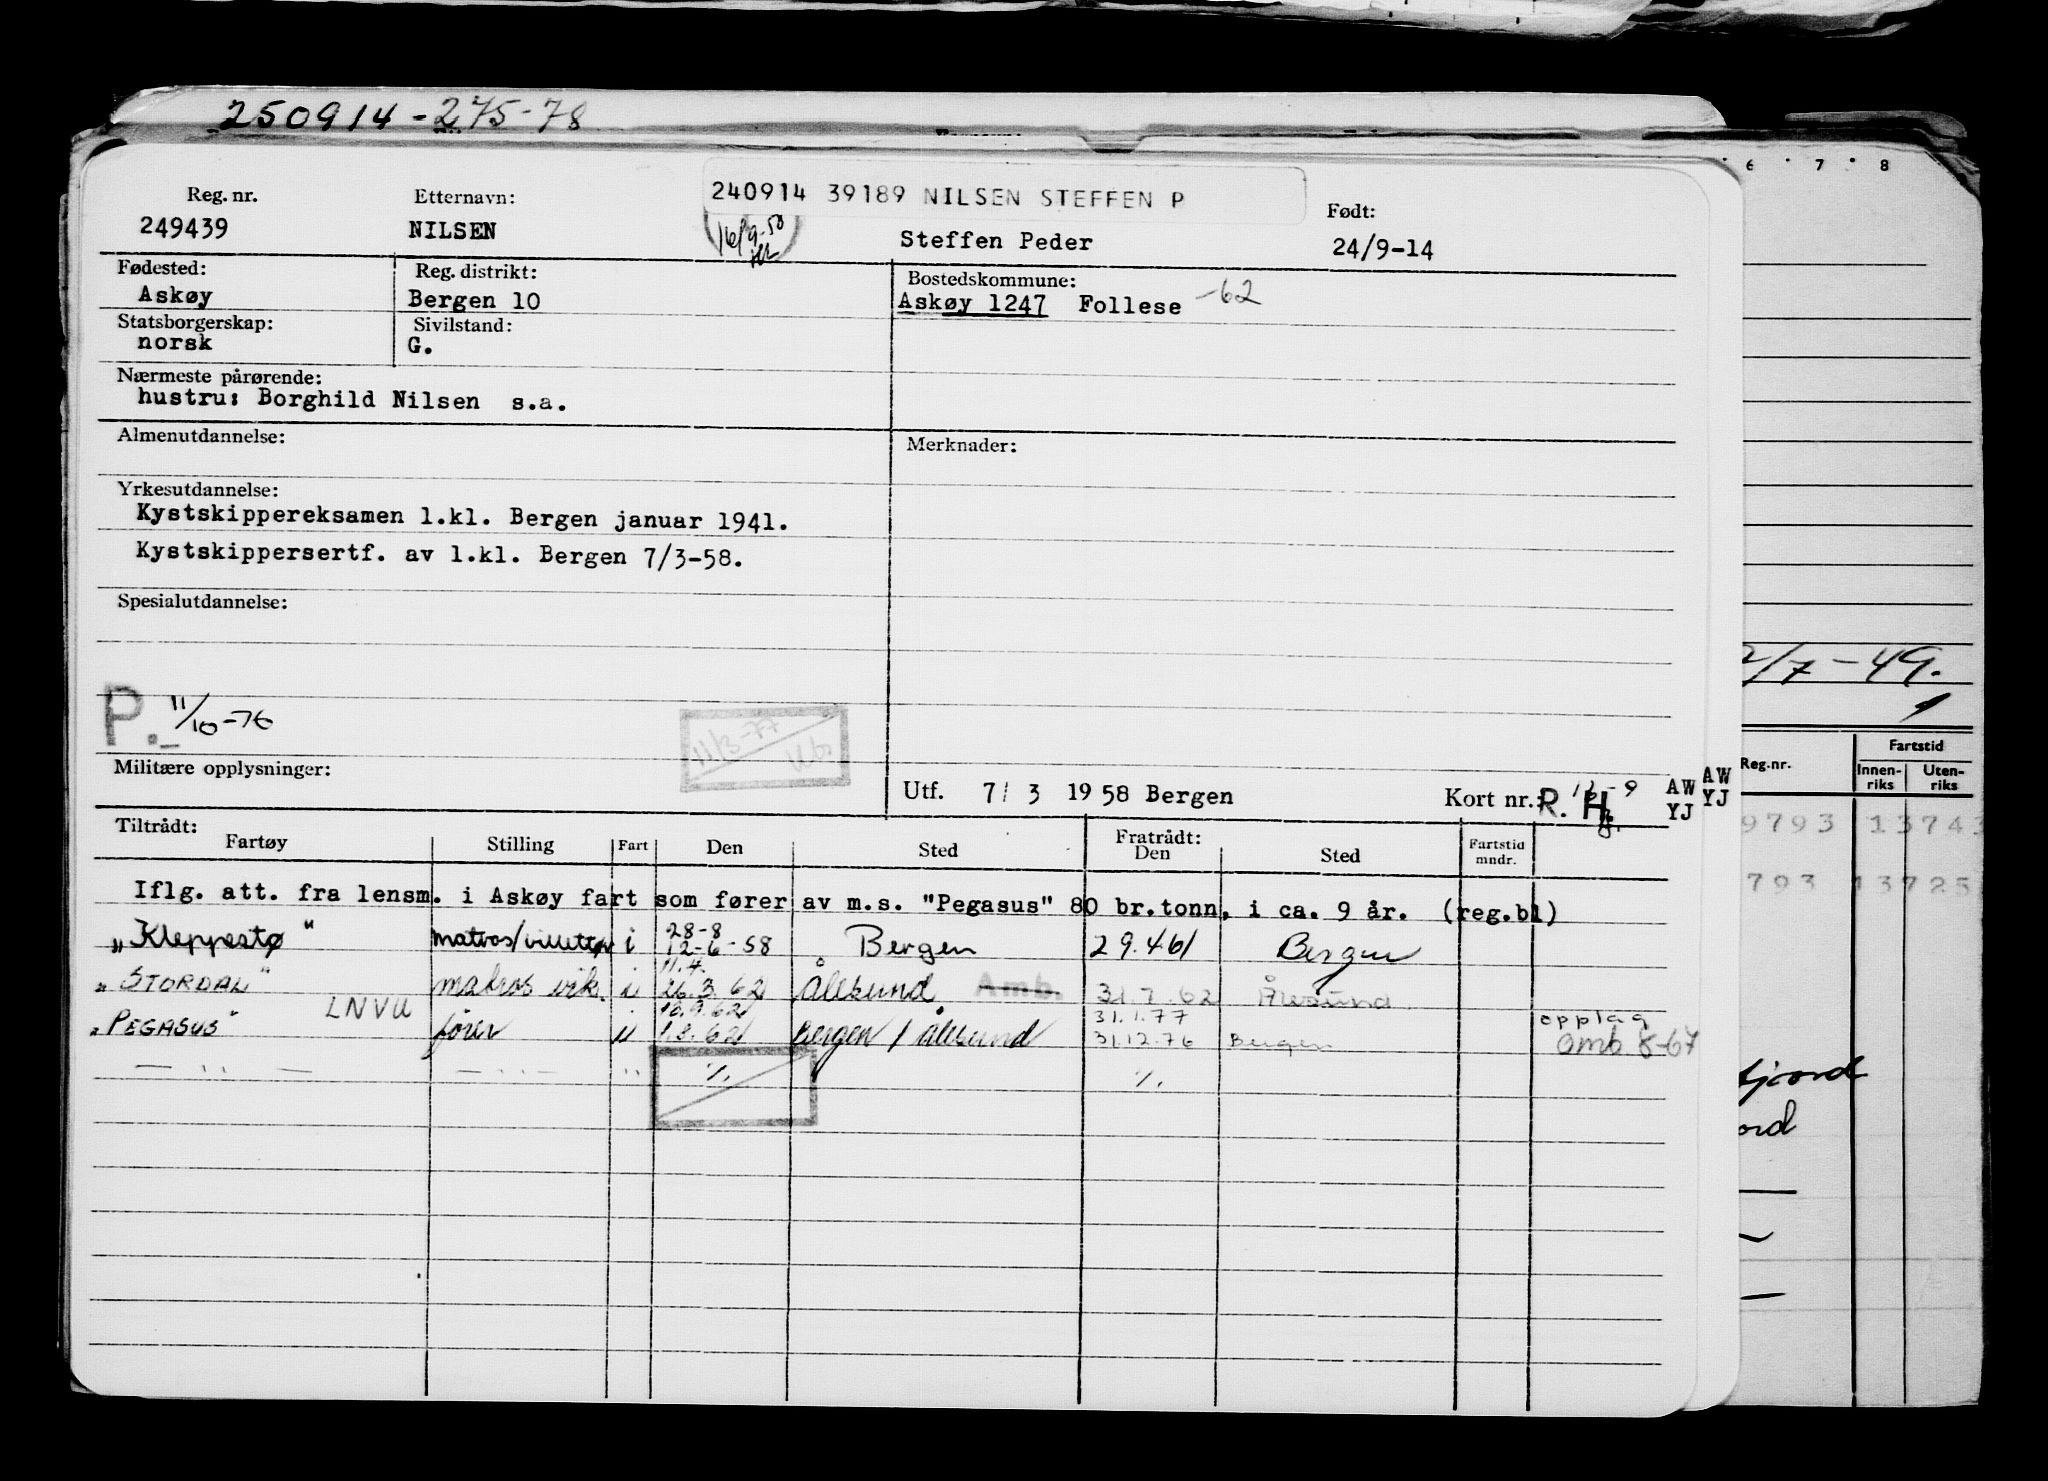 250914-275-78
6 7 8
240914 39189 NILSEN STEFFEN P
Reg. nr. Etternavn: Født:
249439 NILSEN 16/9-58 Steffen Peder 24/9-14
Fødested: Reg. distrikt: Bostedskommune:
Askøy Bergen 10 Askøy 1247 Follese -62
Statsborgerskap: Sivilstand:
norsk G.
Nærmeste pårørende:
hustru: Borghild Nilsen s.a.
Almenutdannelse: Merknader:
Yrkesutdannelse:
Kystskippereksamen 1.kl. Bergen januar 1941.
Kystskippersertf. av 1.kl. Bergen 7/3-58.
Spesialutdannelse:
2/7-49.
P. 11/10-76
11/3-77
Militære opplysninger:
Utf. 7/ 3 19 58 Bergen Kort nr. R. H AW YJ AW YJ
Reg.nr. Fartstid
Innen-riks Uten-riks
Tiltrådt: Fratrådt:
Fartøy Stilling Fart Den Sted Den Sted Fartstid mndr.
9793 13743
793 13725
Iflg. att. fra lensm. i Askøy fart som fører av m.s. "Pegasus" 80 br.tonn, i ca. 9 år. (reg.bl)
28-8
"Kleppestø" matros/billettør i 12-6-58 Bergen 29.4.61 Bergen
11.4.
"STORDAL" matros vik. i 26.3.62 Ålesund Amb. 31.7.62 Ålesund
LNVU 10.9.62 31.1.77 opplag
"PEGASUS" fører u 1.8.62 Bergen / Ålesund 31.12.76 Bergen Omb. 8-67
— " — — " — " %. %.
fjord
ord